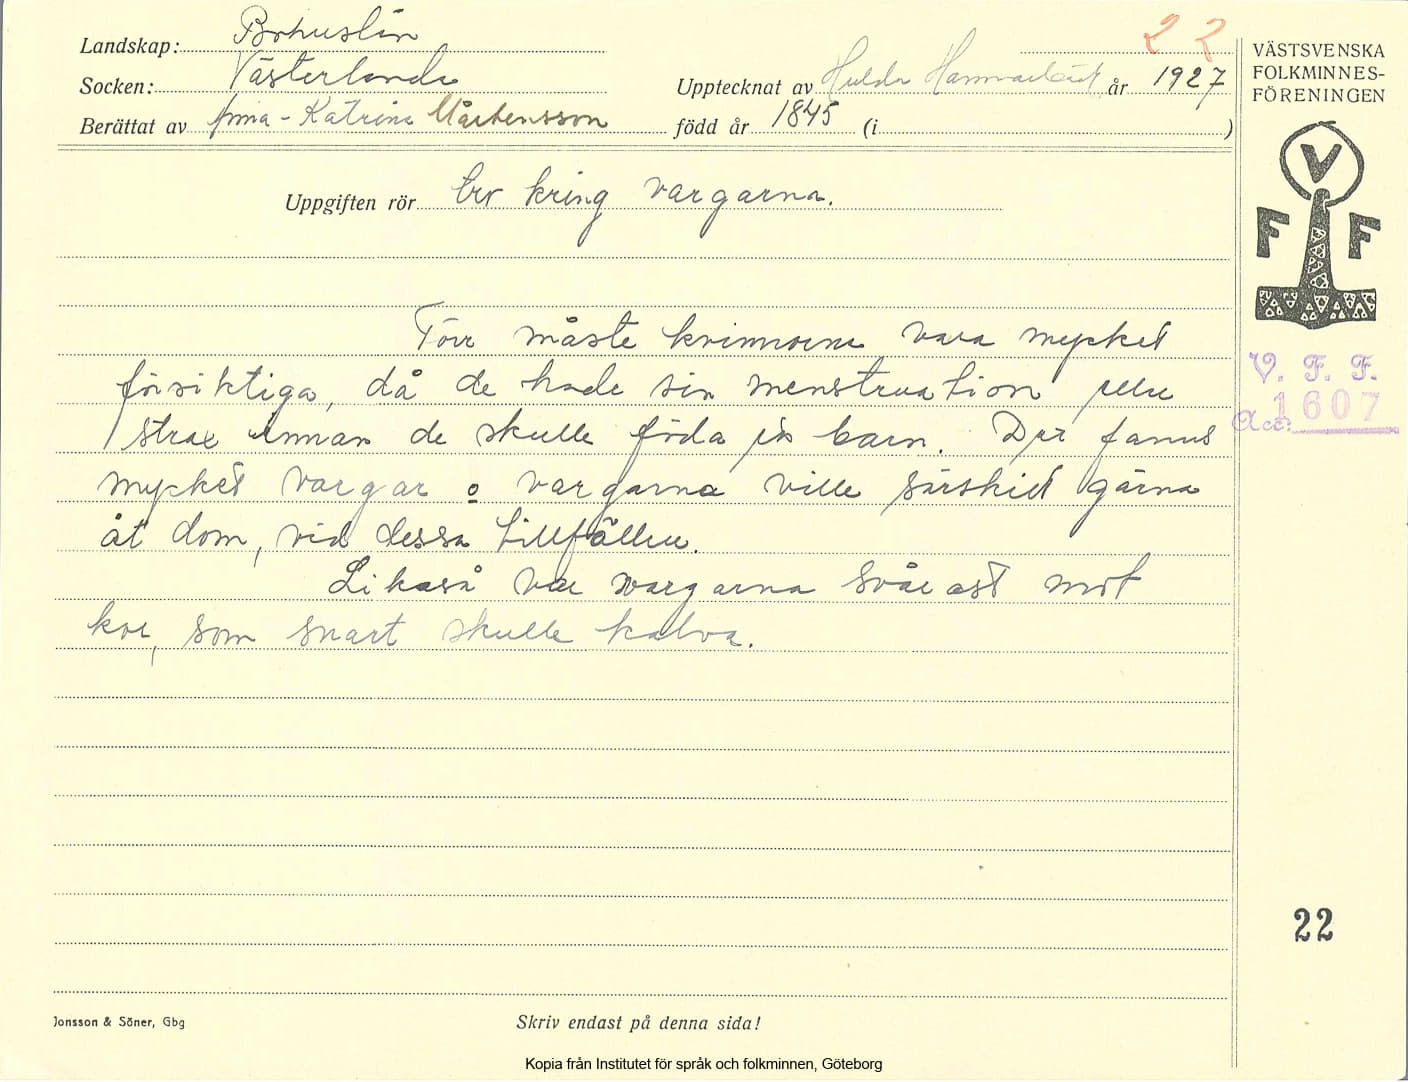 22
Landskap: Bohuslän
Socken: Västerlanda
Upptecknat av Hulda Hammarbäck år 1927
Berättat av Anna-Katrina Mårtensson född år 1845 (i )
VÄSTSVENSKA
FOLKMINNES-
FÖRENINGEN
V
F F
Uppgiften rör Tro kring vargarna.
Förr måste kvinnorna vara mycket
försiktiga, då de hade sin menstruation eller
strax innan de skulle föda sin barn. Det fanns
mycket vargar o vargarna ville särskilt gärna
åt dom, vid dessa tillfällen.
Likaså var vargarna svårast mot
kor, som snart skulle kalva.
V. F. F.
Acc: 1607
22
Jonsson & Söner, Gbg
Skriv endast på denna sida!
Kopia från Institutet för språk och folkminnen, Göteborg